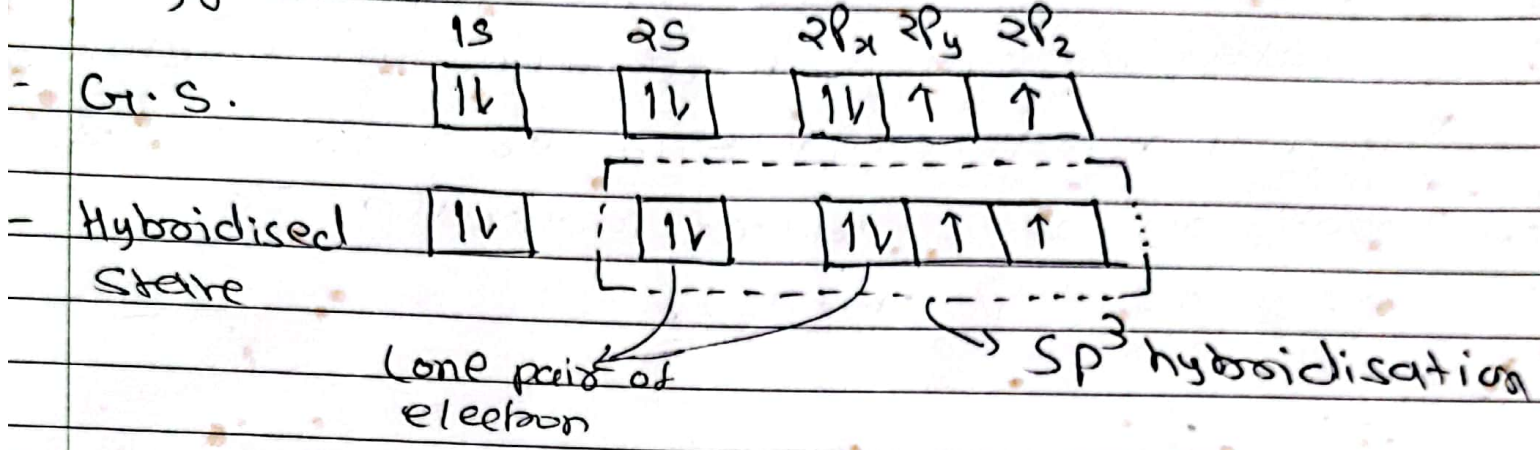 1S 2S 2Px 2Py 2Pz
- G.S. 1↓ 1↓ 1↓ ↑ ↑
- Hybridised 1↓ 1↓ 1↓ ↑ ↑
State
Lone pair of
electron
SP³ hybridisation